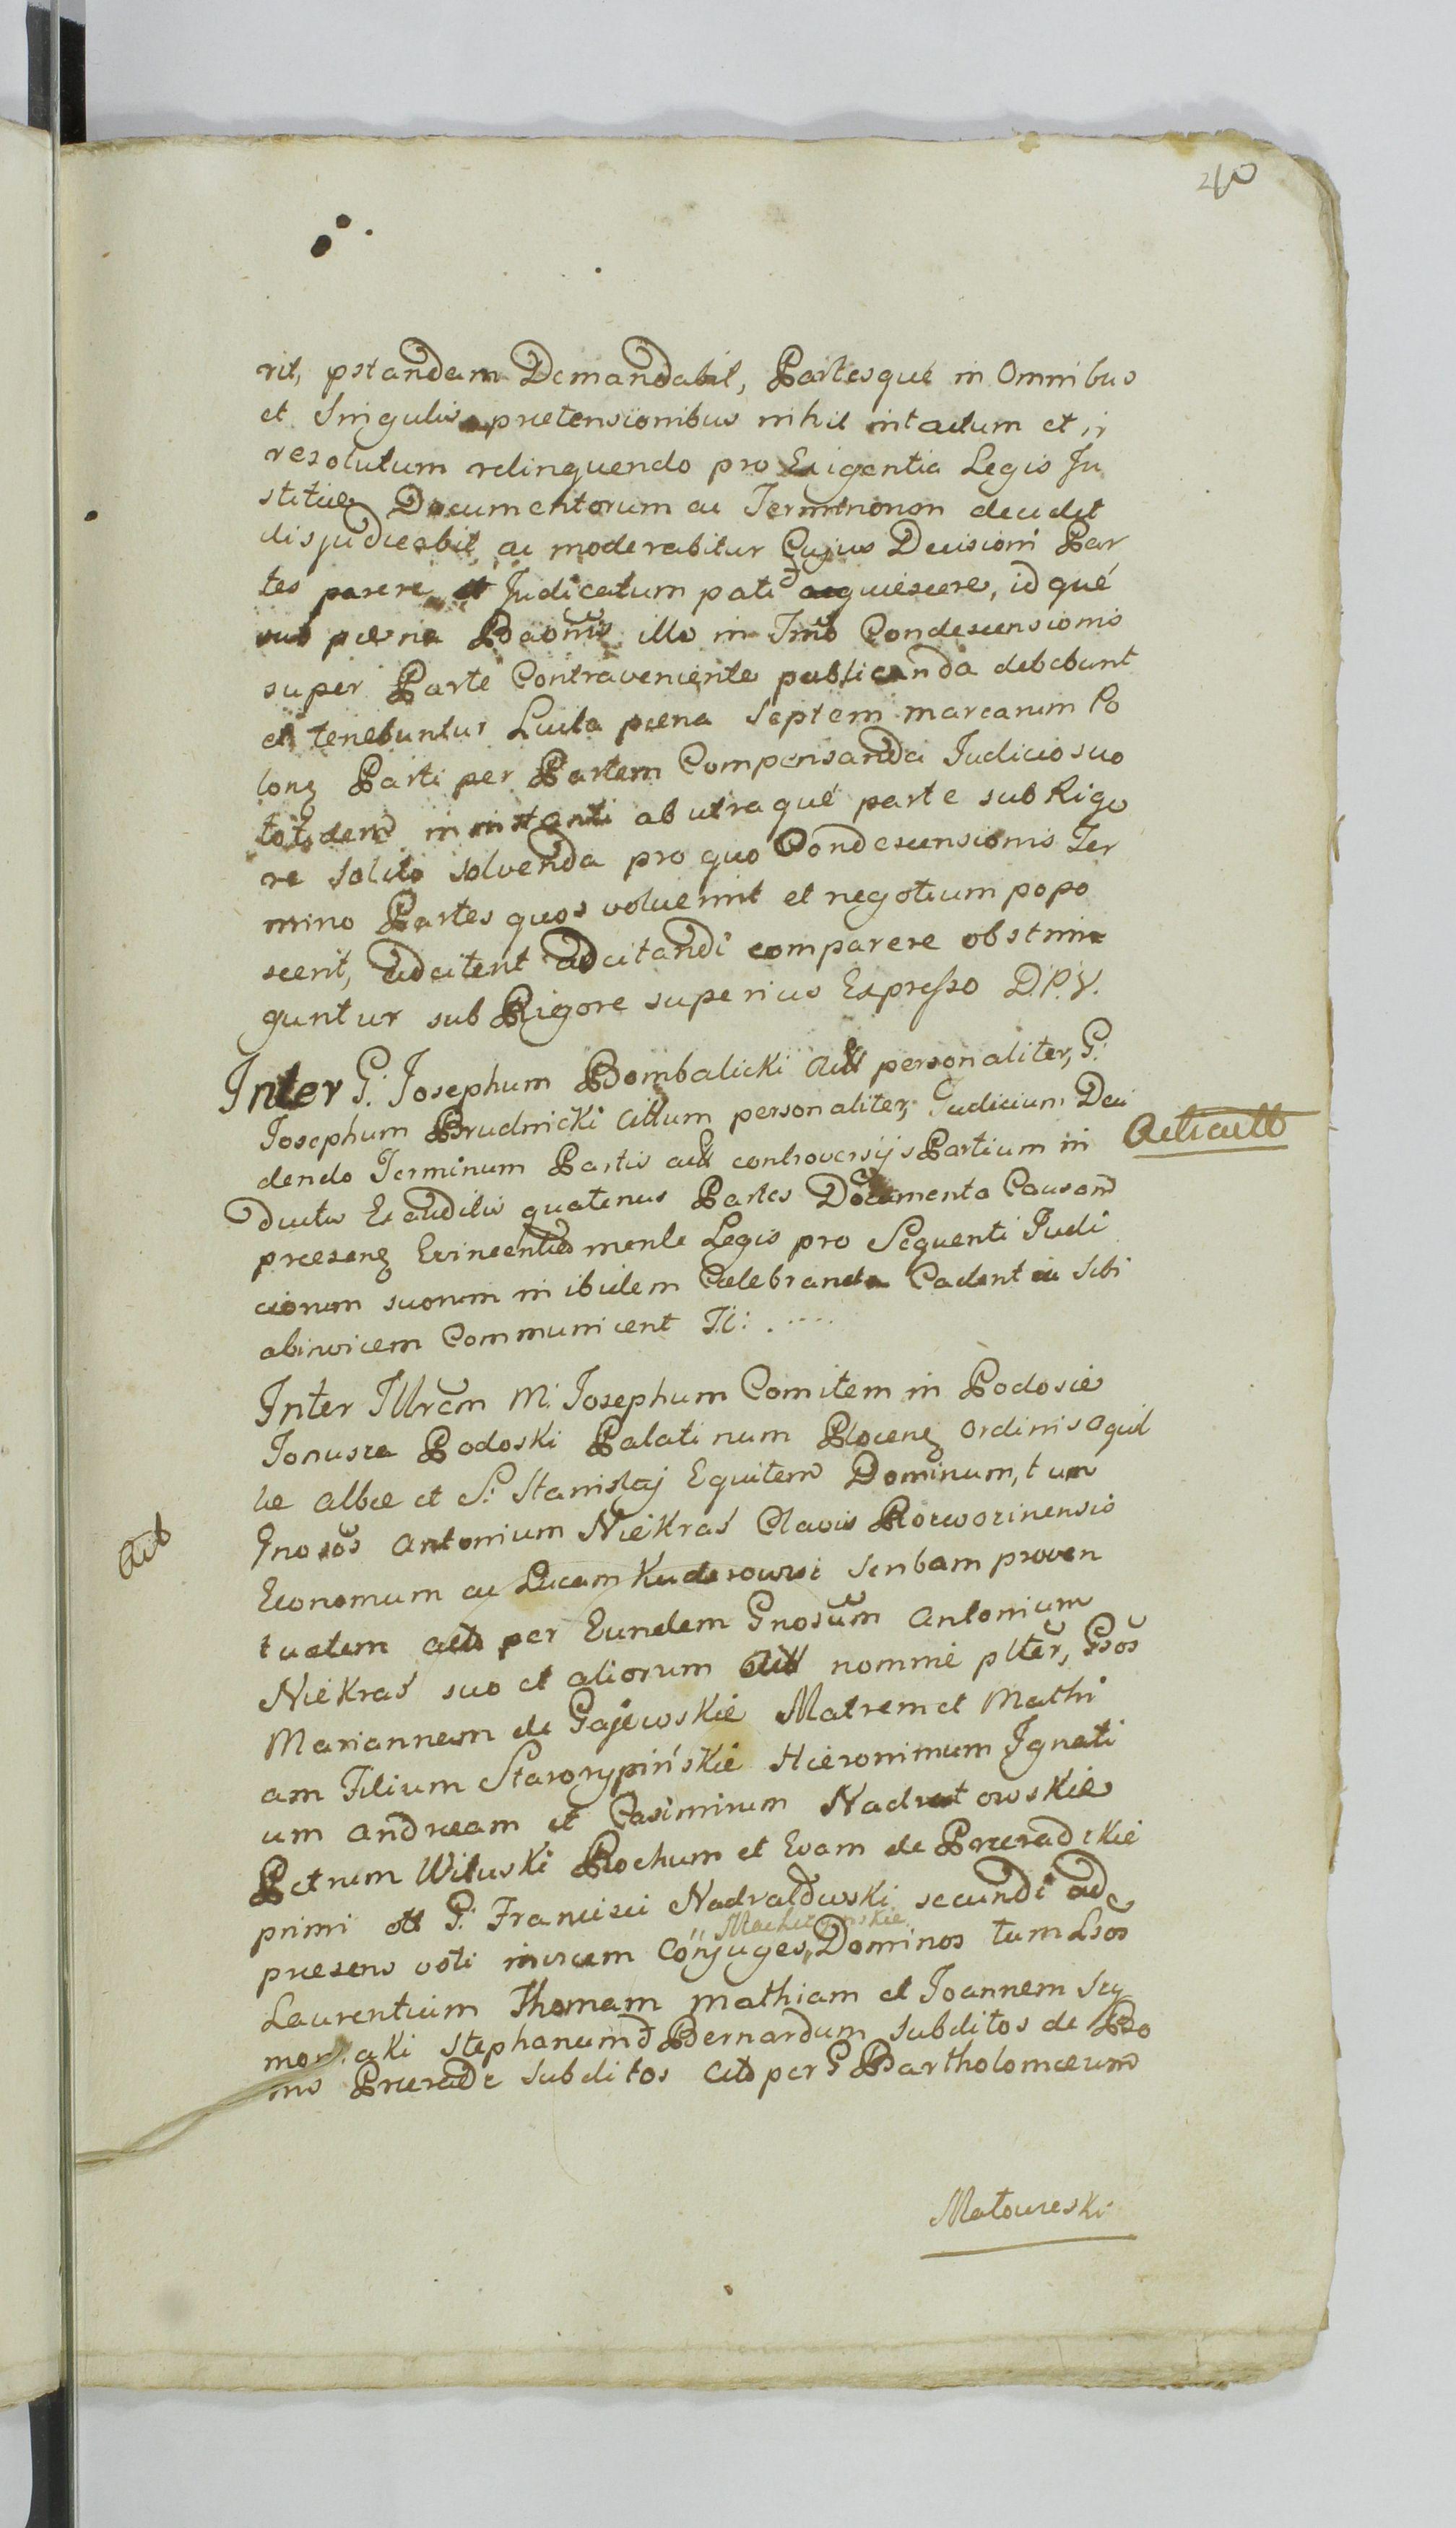 40
rit, pstandam Demandabit, Partesqué in Omnibus
et Singulis prætensionibus nihil intactum et ir
resolutum relinquendo pro Exigentia Legis Ju
stitiæ Documentorum ac Terminorum decidet
disjudicabit, ac moderabitur Cujus Decisioni Par
tes parere et Judicatum pati acquiescere, id qué
sub pœna Baonis illo in Tmno Condescensionis
super Parte Contraveniente publicanda debebunt
et tenebuntur Luita pœna Septem marcarum Po
lon Parti per Partem Compensanda Judicio suo
totidem in instanti ab utraqué parte sub Rigo
re Solito Solvenda pro quo Condescensionis Ter
mino Partes quos voluerint et negotium popo
scerit, adcitent adcitandi comparere obstrin
guntur sub Rigore superius Expresso D.P.V.
Inter G. Josephum Bombalicki Act personaliter, G.
Josephum Brudnicki Citum personaliter, Judicium Deci
dendo Terminum Partis act controversijs Partium in
ductis Exauditis quatenus Partes Documenta Causam
præsen Evincentia mente Legis pro Sequenti Judi
ciorum suorum in ibidem Celebranda Cadentia Sibi
abinvicem Communicent T.C:
Inter Illrem M. Josephum Comitem in Podosie
Junosza Podoski Palatinum Plocen Ordinis Aquil
læ Albæ et S. Stanislaj Equitem Dominum, tum
Gnosos Antonium Niékras Clavis Rorworinensis
Economum ac Lucam scribam proven
tualem act per Eundem Gnosum Antonium
Niékras suo et aliorum Act nomine plter, Gsos
Mariannam de Gajewskie Matrem et Mathi
am Filium Starorypińskie Hieronimum Ignati
um Andream et Casimirum Nadratowskie
Petrum Wituski Rochum et Evam de Pruszadzkie
primi ott G. Francisci Nadratowski secundi ad
Machczynskie
præsens voti invicem Conjuges, Dominos tum Lsos
Laurentium Thomam Mathiam et Joannem Szy
maniaki Stephanum Bernardum Subditos de
Subditos Cit per G Bartholomæum
Act
Matowieski